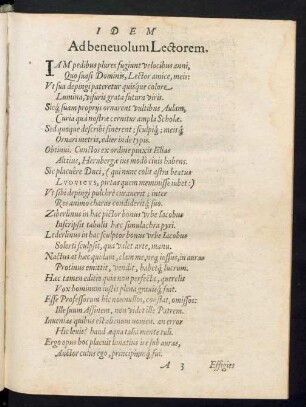 IDEM
Ad beneuolum Lectorem.
IAM pedibus plures fugiunt velocibus anni,
Quo suasi Dominis, Lector amice, meis:
Vt sua depingi pateretur quisque colore
Lumina, visuris grata futura viris.
Sicq́ suam proprijs ornarent vultibus Aulam,
Curia quâ nostræ cernitur ampla Scholæ.
Sed quoque describi sinerent; sculpiq́; meisq́
Ornari metris, edier inde typis.
Obtinui. Cunctos ex ordine pinxit Elias
Altius, Herrnbergæ ius modò ciuis habens.
Sic placuêre Duci, (qui nunc colit astra beatus
LVDVICVS, pietas quem meminisse iubet:)
Vt sibi depingi pulchrè curauerit; inter
Res animo charas condideritq́ suo.
Ziberlinus in hac pictor bonus vrbe Iacobus
Inscripsit tabulis hæc simulachra pyri.
Lederlinus in hac sculptor bonus vrbe Iacobus
Solerti sculpsit, quâ valet arte, manu.
Nactus at hæc quidam, clam me, neq́ iussus, in auras
Protinus emittit, vendit, habetq́ lucrum.
Hæc tamen editio quia non perfecta, querelis
Vox hominum iustis plena grauiq́ fuit.
Esse Professorum hîc nonnullos, constat, omissos:
Ille suum Affinem, non videt ille Patrem.
Inuenias quibus est alienum nomen. an error
Hic leuis? haud æqua talia mente tuli.
Ergo opus hoc placuit limatius ire sub auras,
Auctor cuius ego, principiumq́ fui.
A 3 Effigies